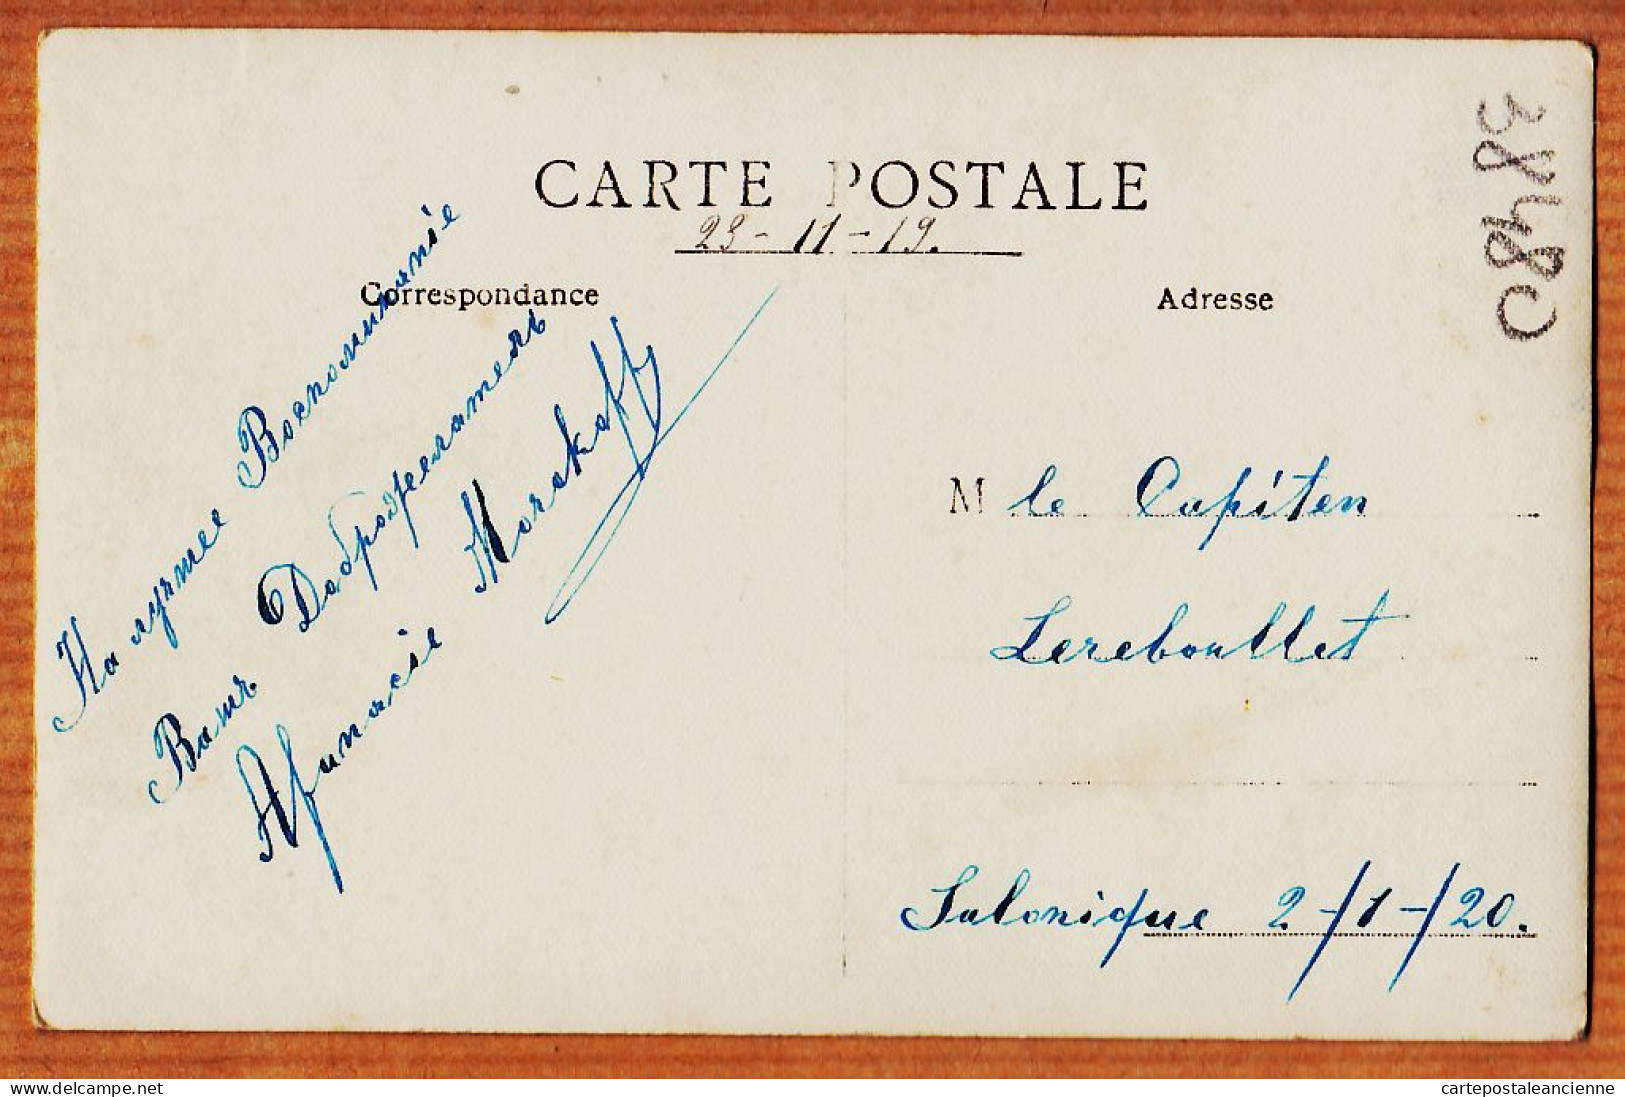 CARTE POSTALE
23-11-19.
Correspondance
Adresse
38480
На лучшее Воспоминаніе
Вашъ Доброжелатель
Афанасіе Morskoff
M le Capiten
Lereboullet
Salonique 2-/1-/20.
cartepostaleancienne